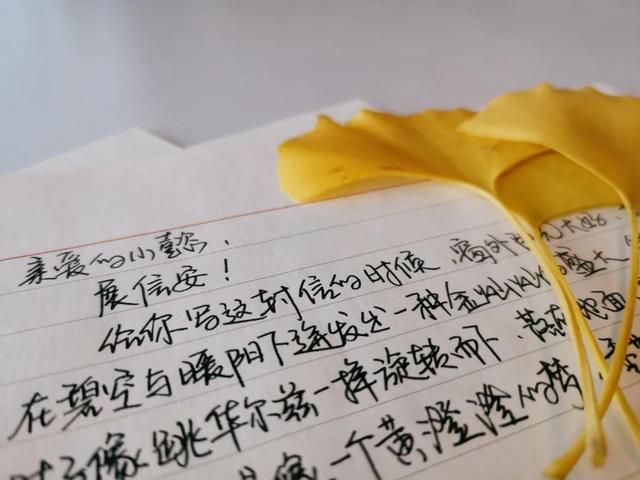 亲爱的小懿:
展信安!
给你写这封信的时候,窗外
在碧空与暖阳下迸发出一种金灿灿的盛大
像跳华尔兹一样旋转而下,
一个黄澄澄的梦,